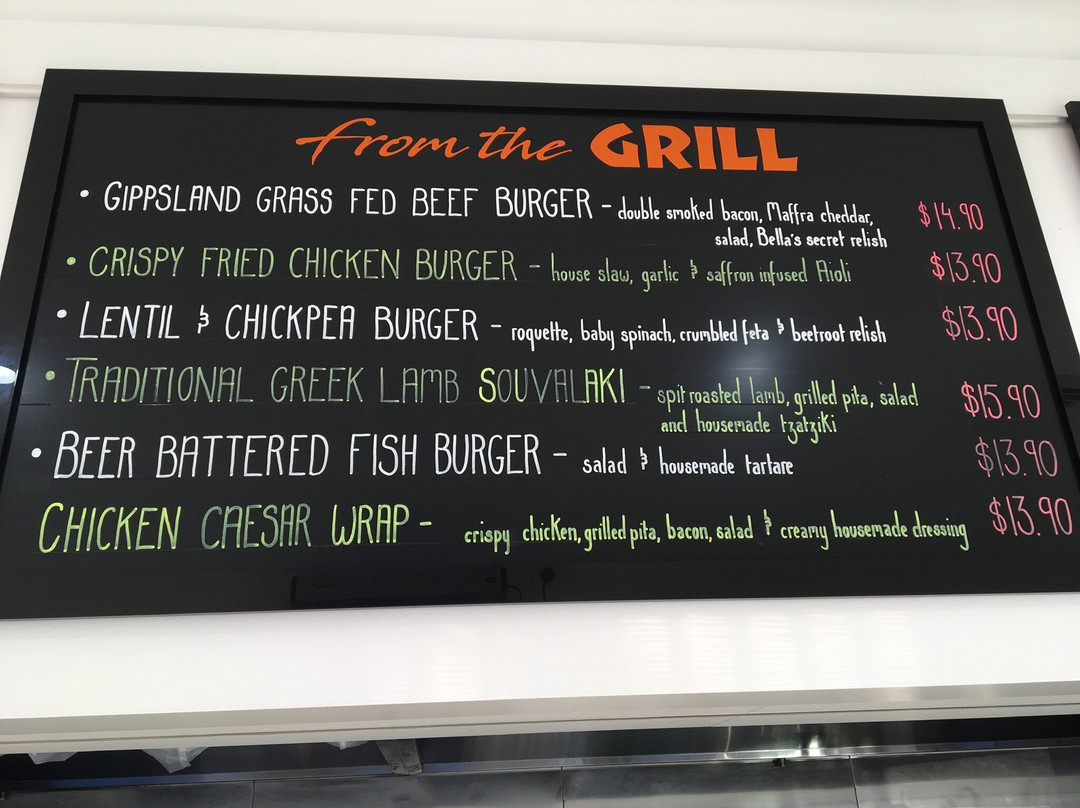 from the GRILL
• GIPPSLAND GRASS FED BEEF BURGER - double smoked bacon, Maffra cheddar, $14.90
salad, Bella's secret relish
• CRISPY FRIED CHICKEN BURGER - house slaw, garlic & saffron infused Aioli $13.90
• LENTIL & CHICKPEA BURGER - roquette, baby spinach, crumbled feta & beetroot relish $13.90
• TRADITIONAL GREEK LAMB SOUVALAKI - spit roasted lamb, grilled pita, salad $15.90
and housemade tzatziki
• BEER BATTERED FISH BURGER - salad & housemade tartare $13.90
CHICKEN CAESAR WRAP - crispy chicken, grilled pita, bacon, salad & creamy housemade dressing $13.90